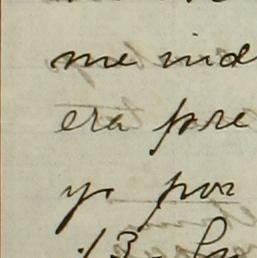 me ind
era pre
yo por
13